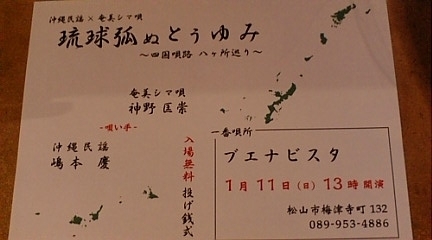 沖縄民謡×奄美シマ唄
琉球弧ぬとぅゆみ
〜四国唄路 八ヶ所巡り〜
奄美シマ唄
神野 匡崇
-唄い手-
沖縄民謡
嶋本 慶
入場無料 投げ銭式
一番唄所
ブエナビスタ
1月11日(日)13時開演
松山市梅津寺町 132
089-953-4886